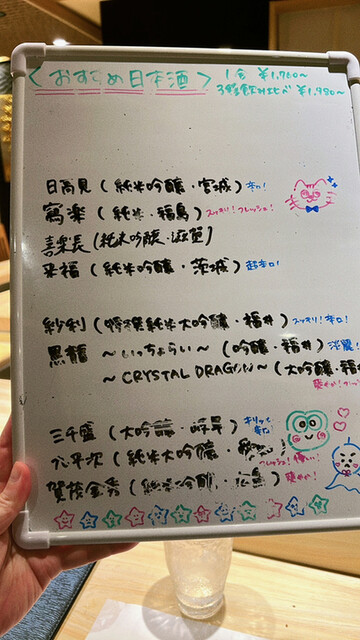 〈おすすめ日本酒〉 1合 ¥1,760〜
3種飲み比べ ¥1,980〜
日高見(純米吟醸・宮城) 辛口!
寫楽(純米・福島) スッキリ!フレッシュ!
喜楽長(純米吟醸・滋賀)
来福(純米吟醸・茨城) 超辛口!
紗利(特撰純米大吟醸・福井) スッキリ!辛口!
黒龍 〜いっちょらい〜(吟醸・福井) 淡麗!
〜CRYSTAL DRAGON〜(大吟醸・福井
爽やか!
三千盛(大吟醸・岐阜) キリッと辛口
九平次(純米大吟醸・ フレッシュ!
賀茂金秀(純米吟醸・広島) 爽やか!